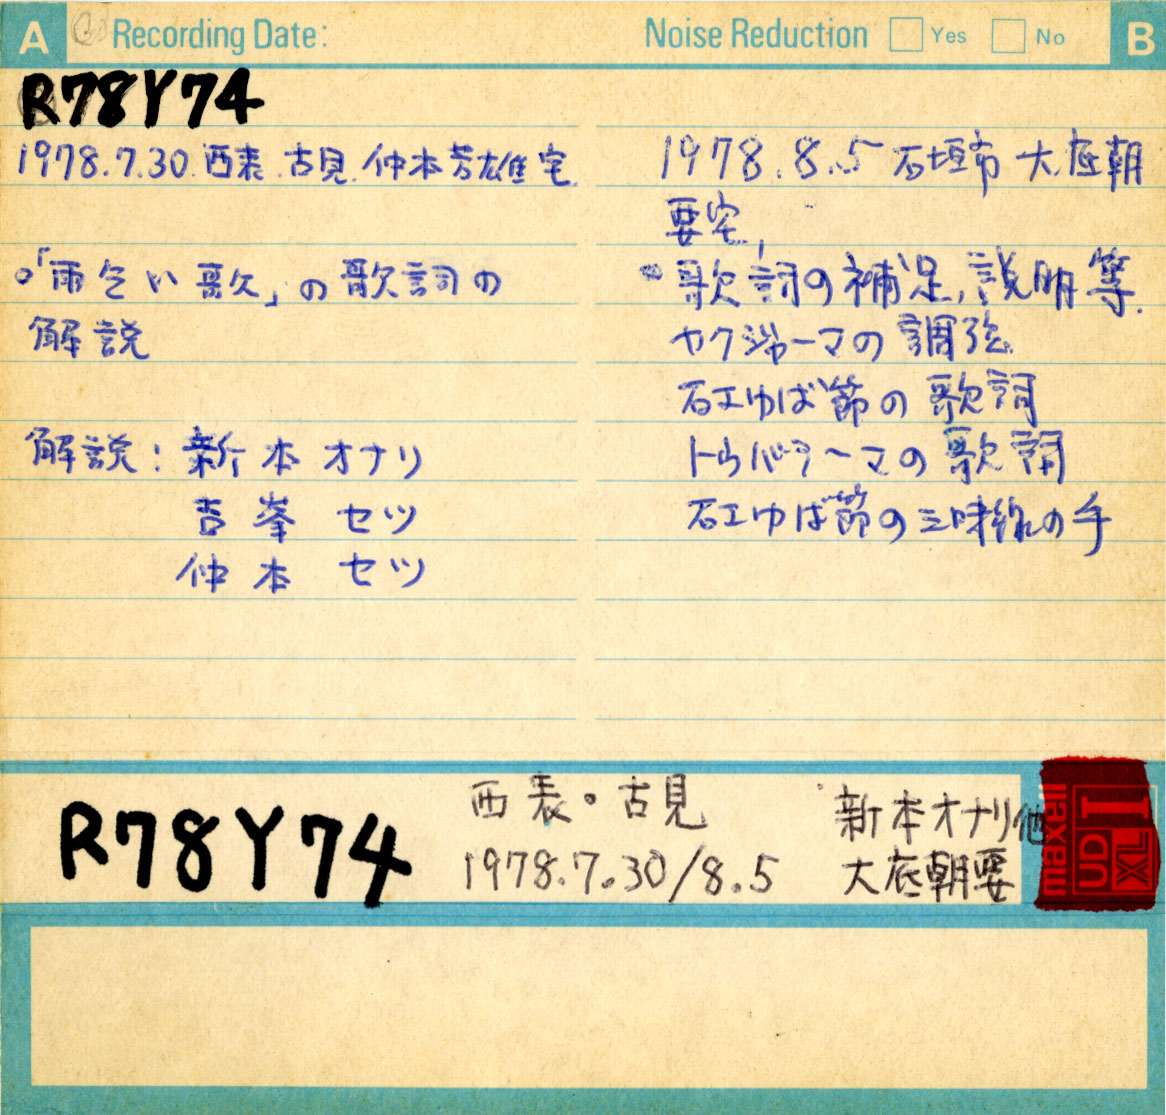 A Recording Date: Noise Reduction Yes No B
R78Y74
1978.7.30. 西表 古見 仲本芳雄宅
○「雨乞い歌」の歌詞の
解説
解説: 新本 オナリ
吉峯 セツ
仲本 セツ
1978.8.5 石垣市 大底朝
要宅,
歌詞の補足,説明等.
ヤクジャーマの調弦
石エゆば節の歌詞
トゥバラーマの歌詞
石エゆば節の三味線の手
R78Y74
西表・古見
1978.7.30/8.5
新本オナリ他
大底朝要
maxell
UD
XL
I